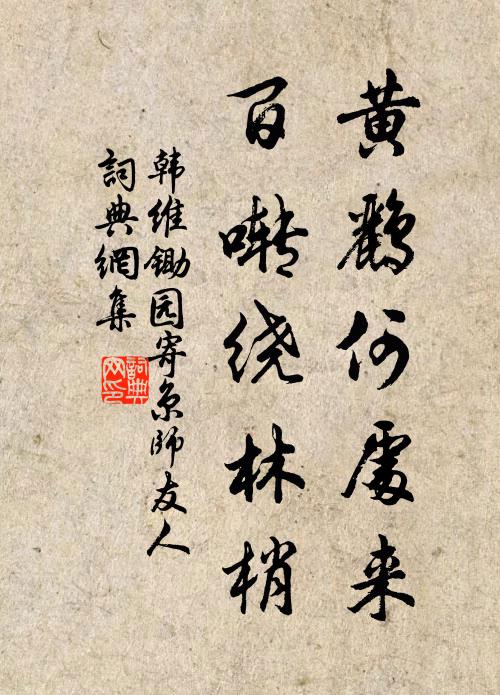 黄鹂何處来
百啭绕林梢
韩维锄园寄京師友人
詞典網集
詞典网印